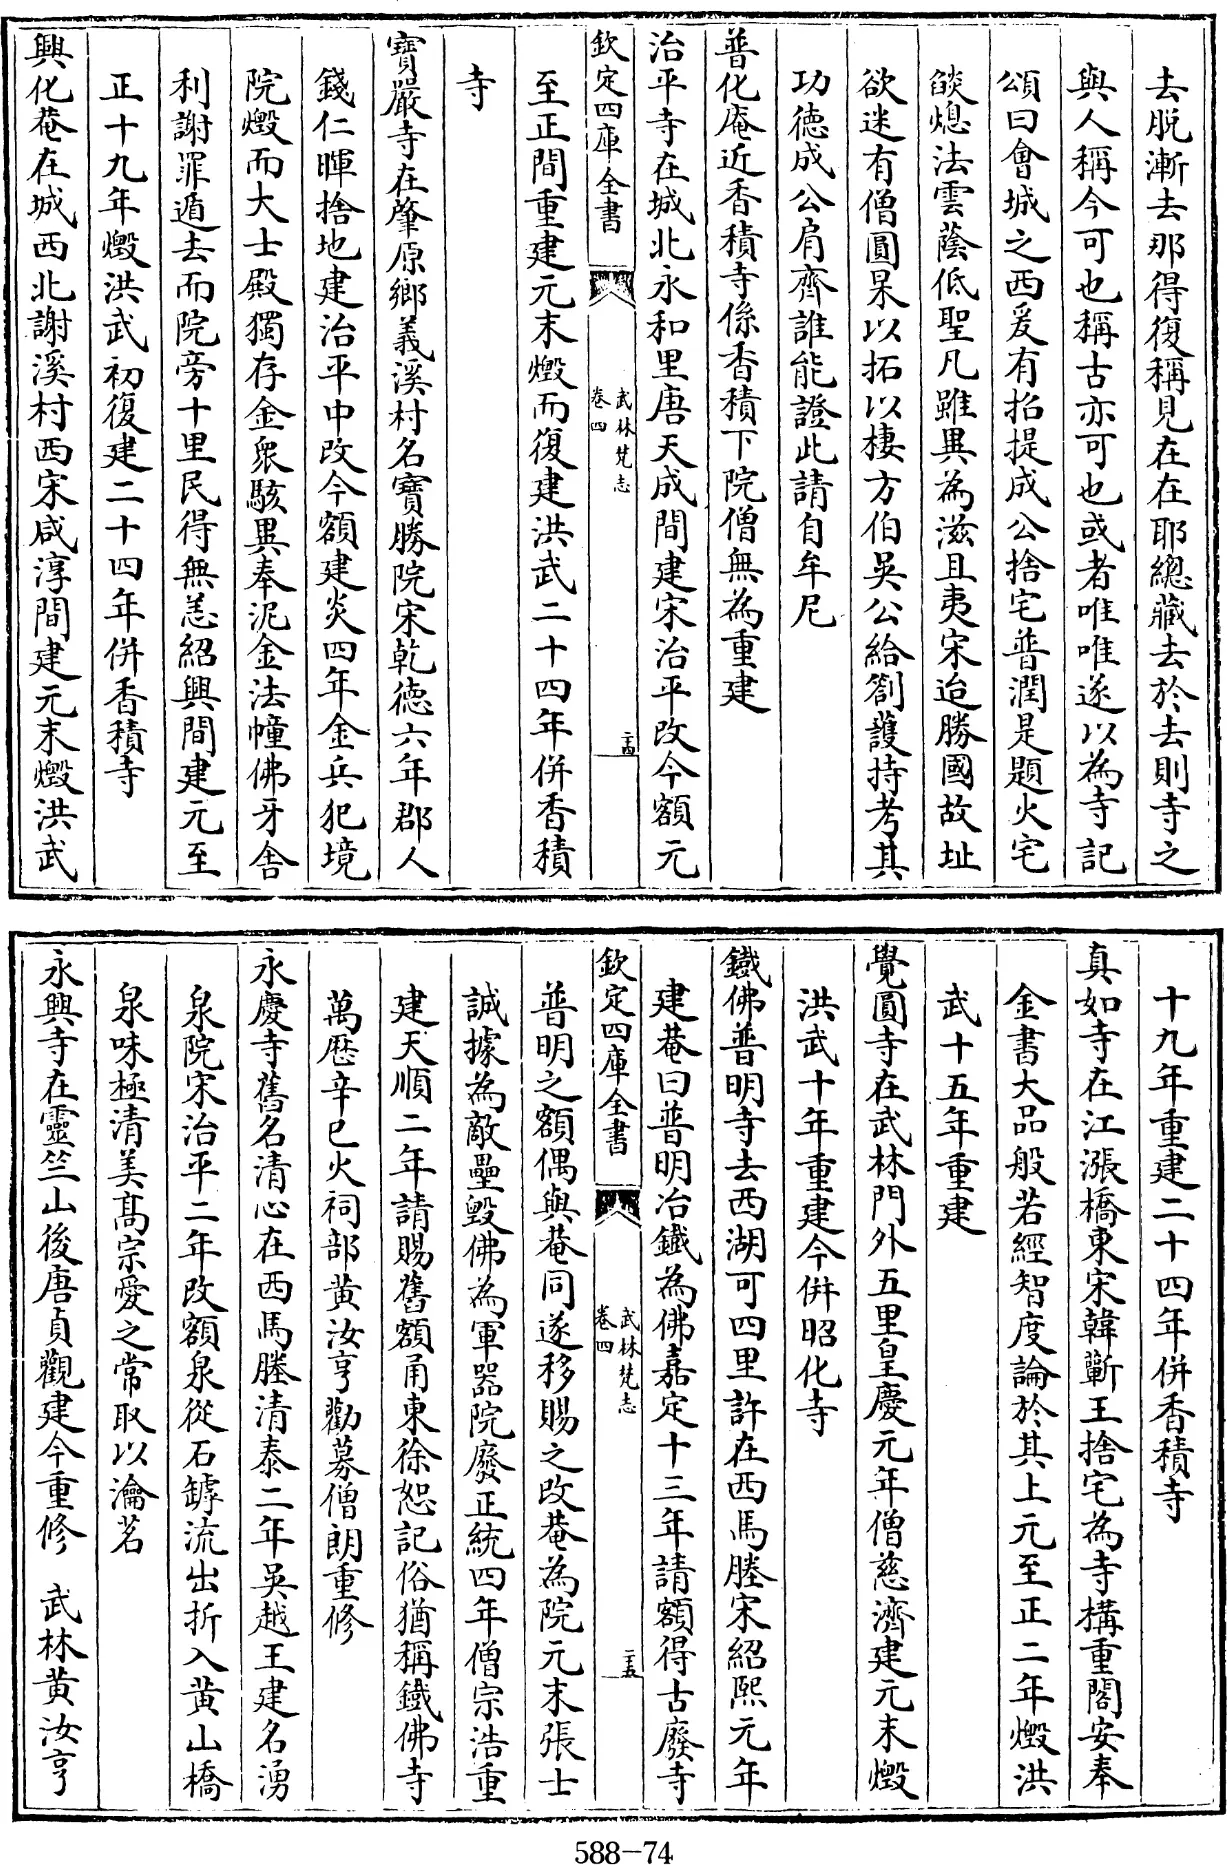 去脱漸去那得復稱見在在耶總藏去於去則寺之
與人稱今可也稱古亦可也或者唯唯遂以為寺記
頌曰會城之西爰有招提成公捨宅普潤是題火宅
燄熄法雲蔭低聖凡雖異為滋且夷宋迨勝國故址
欲迷有僧圓杲以拓以棲方伯吳公給劄護持考其
功德成公肩齊誰能證此請自牟尼
普化庵近香積寺係香積下院僧無為重建
治平寺在城北永和里唐天成間建宋治平改今額元
欽定四庫全書
武林梵志
卷四
二十四
至正間重建元末燬而復建洪武二十四年併香積
寺
寶嚴寺在肇原鄉義溪村名寶勝院宋乾德六年郡人
錢仁暉捨地建治平中改今額建炎四年金兵犯境
院燬而大士殿獨存金衆駭異奉泥金法幢佛牙舍
利謝罪遁去而院旁十里民得無恙紹興間建元至
正十九年燬洪武初復建二十四年併香積寺
興化菴在城西北謝溪村西宋咸淳間建元末燬洪武
十九年重建二十四年併香積寺
真如寺在江漲橋東宋韓蘄王捨宅為寺構重閣安奉
金書大品般若經智度論於其上元至正二年燬洪
武十五年重建
覺圓寺在武林門外五里皇慶元年僧慈濟建元末燬
洪武十年重建今併昭化寺
鐵佛普明寺去西湖可四里許在西馬塍宋紹熙元年
建菴曰普明冶鐵為佛嘉定十三年請額得古廢寺
欽定四庫全書
武林梵志
卷四
二十五
普明之額偶與菴同遂移賜之改菴為院元末張士
誠據為敵壘毀佛為軍器院廢正統四年僧宗浩重
建天順二年請賜舊額甬東徐恕記俗猶稱鐵佛寺
萬厯辛巳火祠部黄汝亨勸募僧朗重修
永慶寺舊名清心在西馬塍清泰二年吳越王建名湧
泉院宋治平二年改額泉從石罅流出折入黄山橋
泉味極清美髙宗愛之常取以瀹茗
永興寺在靈竺山後唐貞觀建今重修 武林黄汝亨
588-74